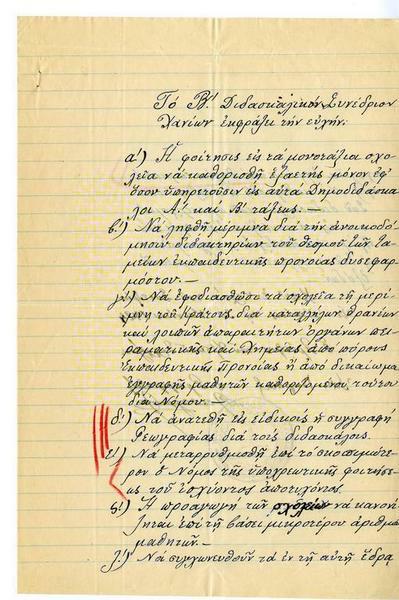 Τὸ Β.' Διδασκαλικὸν Συνέδριον
Χανίων ἐκφράζει τὴν εὐχήν:
α΄) Ἡ φοίτησις εἰς τὰ μονοτάξια σχο-
λεῖα νὰ καθορισθῇ ἑξαετὴς μόνον ἐφ'
ὅσον ὑπηρετοῦσιν εἰς αὐτὰ Δημοδιδάσκα-
λοι Α.' καὶ Β' τάξεως.—
β΄) Νὰ ληφθῇ μέριμνα διὰ τὴν ἀνοικοδό-
μησιν διδακτηρίων τοῦ θεσμοῦ τῶν τα-
μείων ἐκπαιδευτικῆς προνοίας δυσεφαρ-
μόστου.—
γ΄) Νὰ ἐφοδιασθῶσι τὰ σχολεῖα τῇ μερί-
μνῃ τοῦ Κράτους διὰ καταλλήλων θρανίων
καὶ λοιπῶν ἀπαραιτήτων ὀργάνων πει-
ραματικῆς καὶ Χημείας ἀπὸ πόρους
Ἐκπαιδευτικῆς Προνοίας ἢ ἀπὸ δικαίωμα
ἐγγραφῆς μαθητῶν καθοριζομένου τούτου
διὰ Νόμου.—
δ΄) Νὰ ἀνατεθῇ εἰς εἰδικοὺς ἡ συγγραφὴ
Γεωγραφίας διὰ τοὺς διδασκάλους.
ε΄) Νὰ μεταρρυθμισθῇ ἐπὶ τὸ σκοπιμώτε-
ρον ὁ Νόμος τῆς ὑποχρεωτικῆς φοιτήσε-
ως τοῦ ἰσχύοντος ἀποτυχόντος.
ς΄) Ἡ προαγωγὴ τῶν σχολείων νὰ κανονί-
ζηται ἐπὶ τῇ βάσει μικροτέρου ἀριθμοῦ
μαθητῶν.—
ζ΄) Νὰ συγχωνευθοῦν τὰ ἐν τῇ αὐτῇ ἕδρᾳ